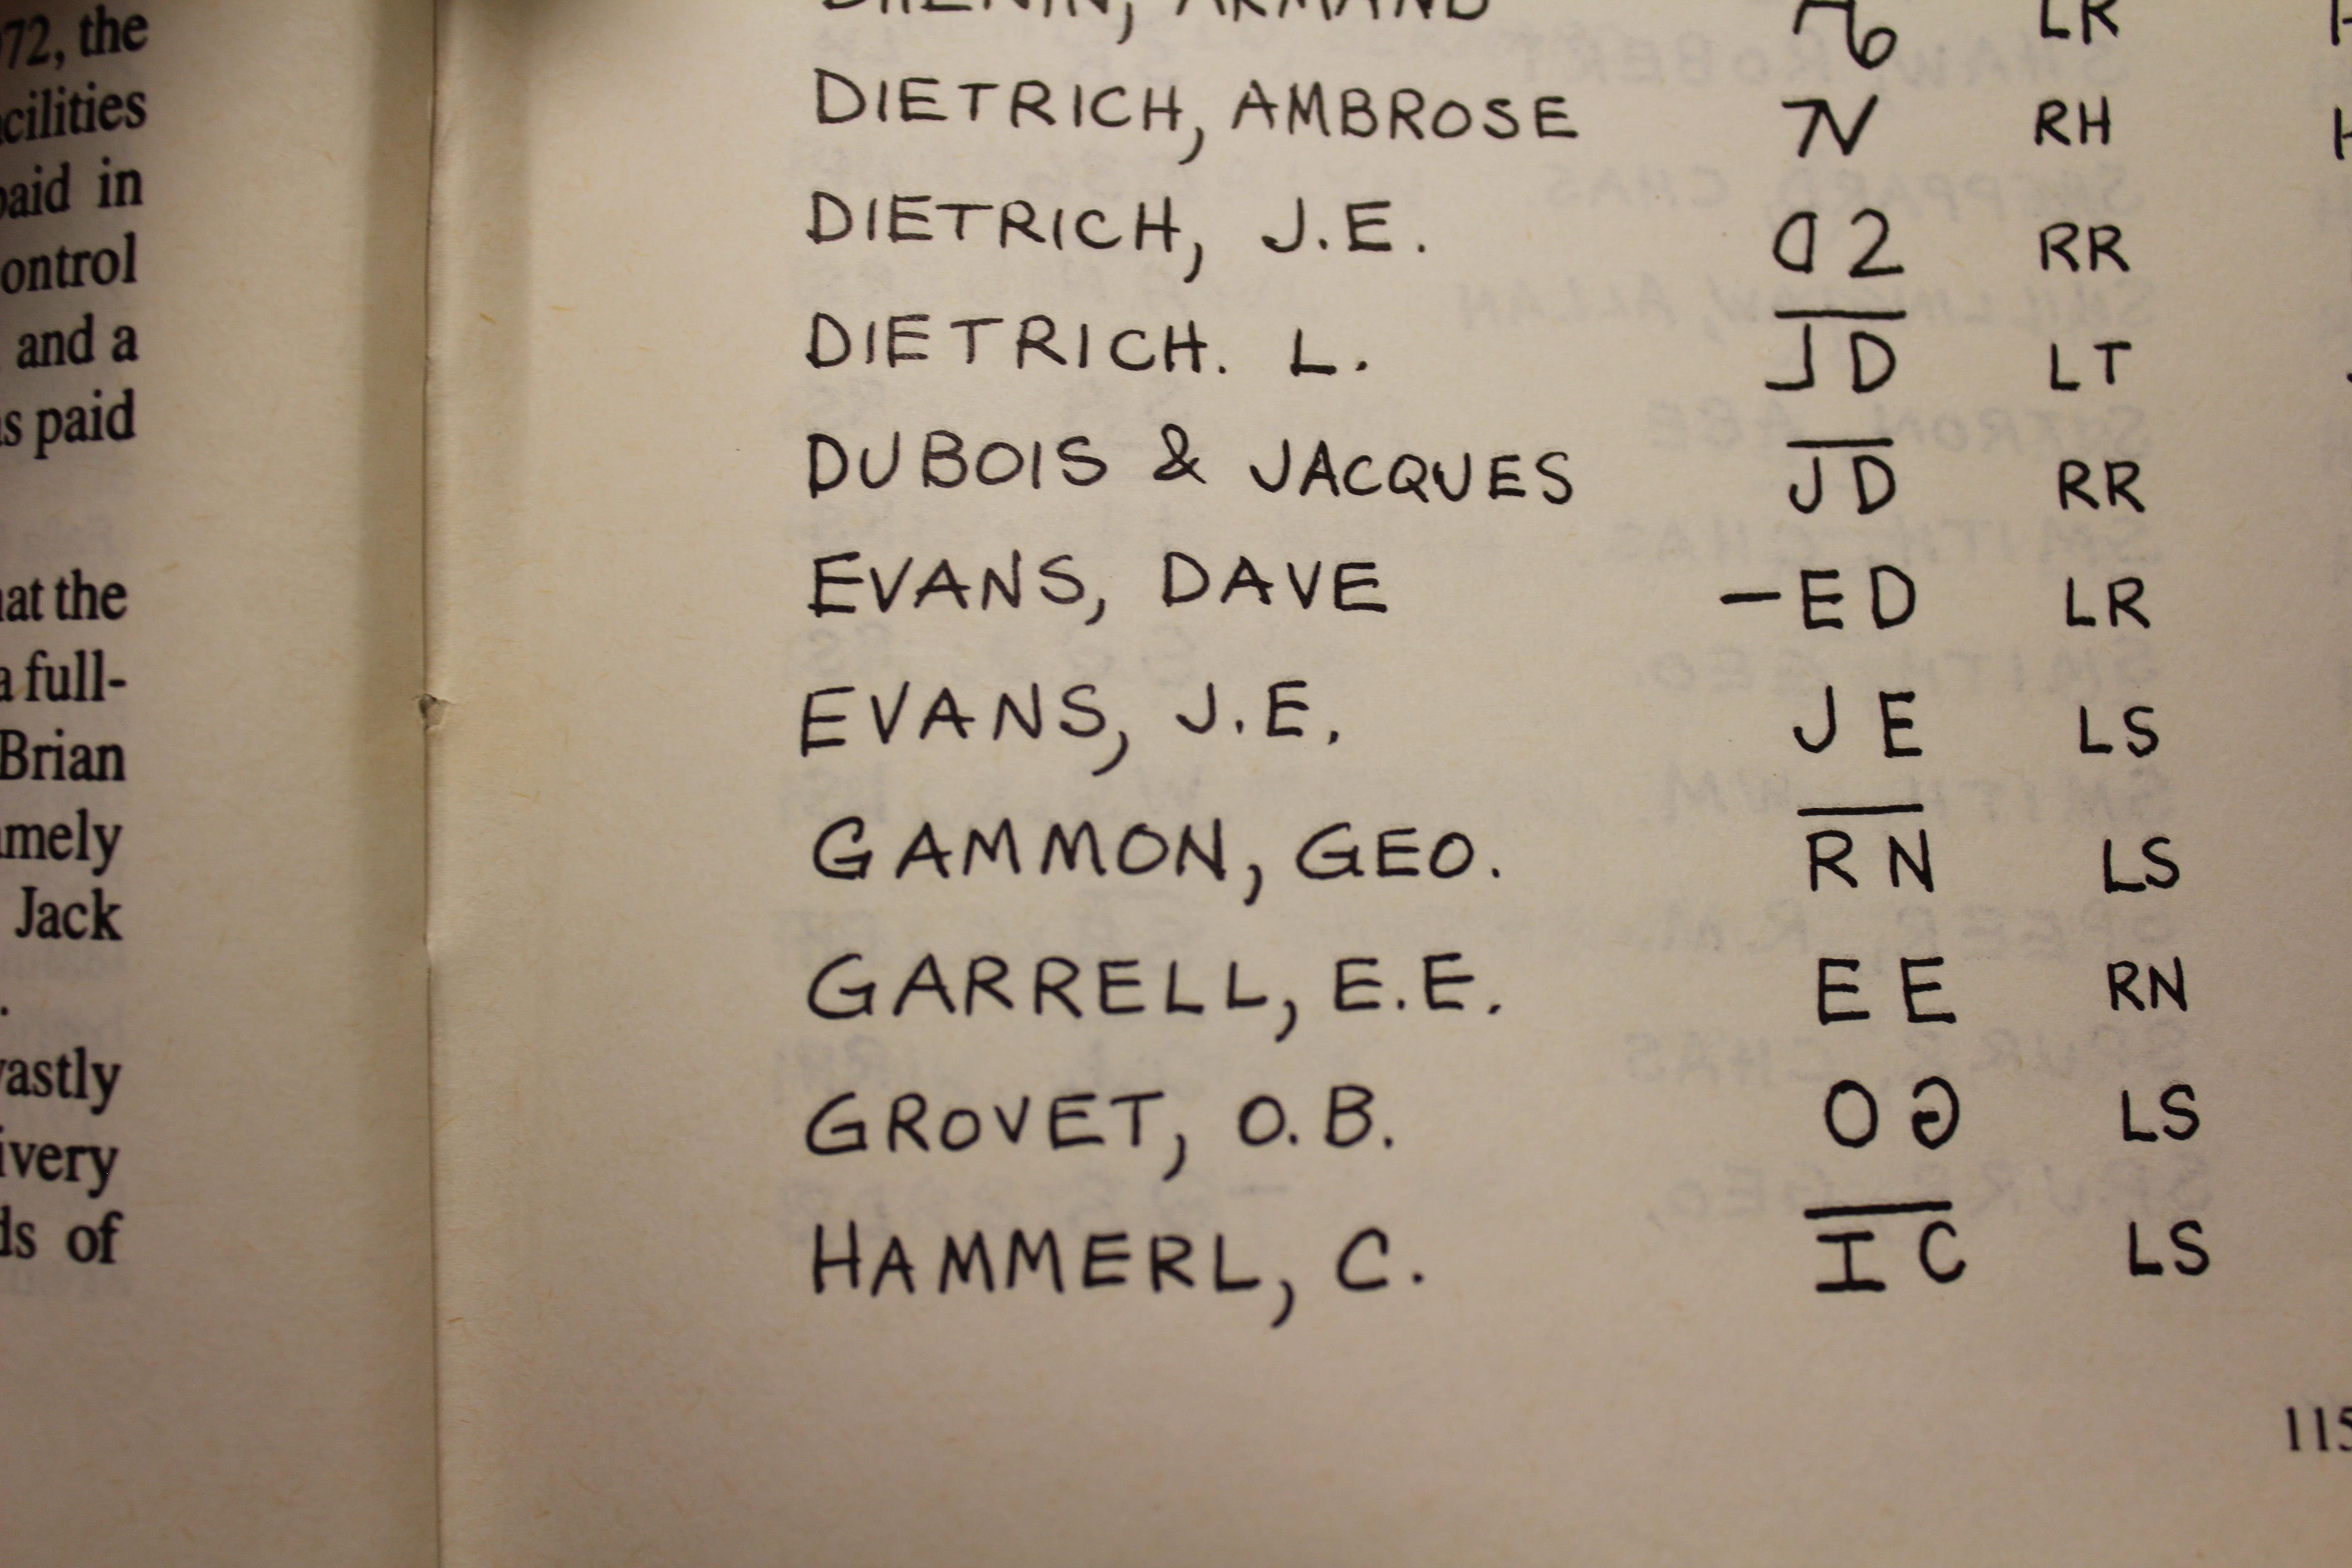 72, the
cilities
paid in
ontrol
and a
s paid
at the
a full-
Brian
mely
Jack
.
vastly
ivery
ds of
ARMAND LR
DIETRICH, AMBROSE RH
DIETRICH, J.E. D2 RR
DIETRICH. L. JD LT
DUBOIS & JACQUES JD RR
EVANS, DAVE -ED LR
EVANS, J.E. JE LS
GAMMON, GEO. RN LS
GARRELL, E.E. EE RN
GROVET, O.B. LS
HAMMERL, C. IC LS
115